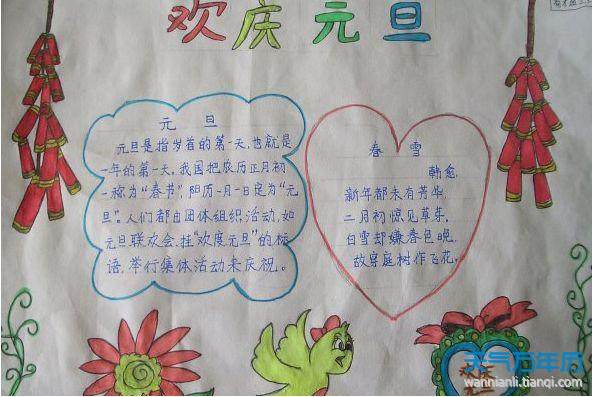 欢庆元旦
元旦
元旦是指岁首的第一天,也就是
一年的第一天,我国把农历正月初
一称为“春节”,阳历一月一日定为“元
旦”。人们都由团体组织活动,如
元旦联欢会,挂“欢度元旦”的标
语,举行集体活动来庆祝。
春雪
韩愈
新年都未有芳华,
二月初惊见草芽,
白雪却嫌春色晚,
故穿庭树作飞花。
天气万年历
wannianli.tianqi.com